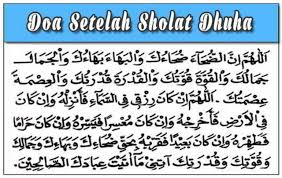 Doa Setelah Sholat Dhuha
اَللّٰهُمَّ اِنَّ الضُّحَآءَ ضُحَاءُكَ وَالْبَهَاءَ بَهَاءُكَ وَالْجَمَالَ
جَمَالُكَ وَالْقُوَّةَ قُوَّتُكَ وَالْقُدْرَةَ قُدْرَتُكَ وَالْعِصْمَةَ
عِصْمَتُكَ . اَللّٰهُمَّ اِنْ كَانَ رِزْقِى فِى السَّمَآءِ فَأَنْزِلْهُ وَاِنْ كَانَ
فِى الْاَرْضِ فَأَخْرِجْهُ وَاِنْ كَانَ مُعْسِرًا فَيَسِّرْهُ وَاِنْ كَانَ حَرَامًا
فَطَهِّرْهُ وَاِنْ كَانَ بَعِيْدًا فَقَرِّبْهُ بِحَقِّ ضُحَاءِكَ وَبَهَاءِكَ وَجَمَالِكَ
وَقُوَّتِكَ وَقُدْرَتِكَ آتِنِى مَا أَتَيْتَ عِبَادَكَ الصَّالِحِيْنَ .